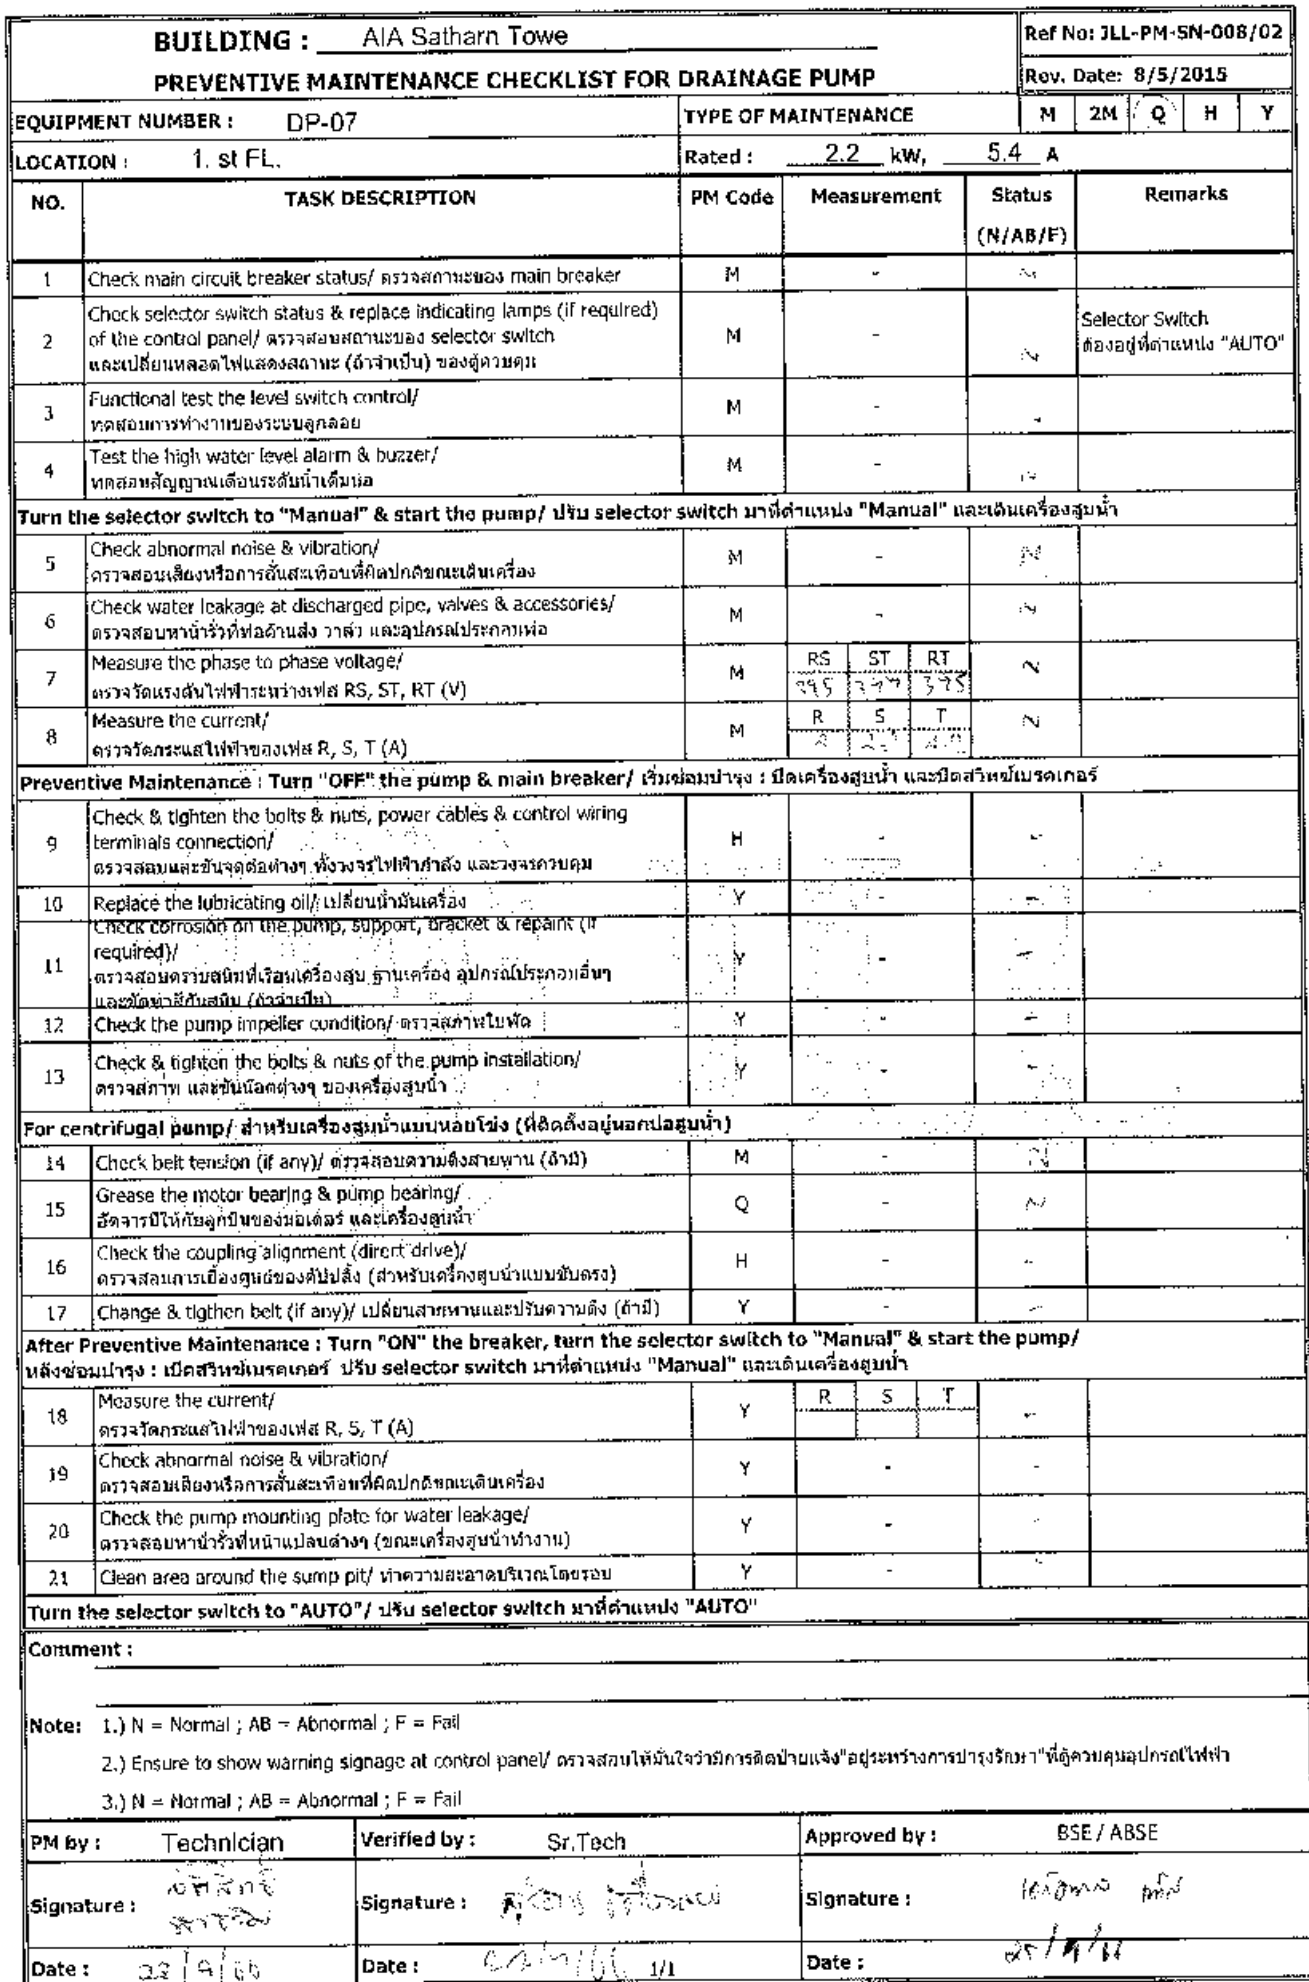 BUILDING : AIA Satharn Towe
Ref No: JLL-PM-SN-008/02
PREVENTIVE MAINTENANCE CHECKLIST FOR DRAINAGE PUMP
Rev. Date: 8/5/2015
EQUIPMENT NUMBER : DP-07
TYPE OF MAINTENANCE M 2M Q H Y
LOCATION : 1. st FL.
Rated : 2.2 kW, 5.4 A
NO. TASK DESCRIPTION PM Code Measurement Status Remarks
(N/AB/F)
1 Check main circuit breaker status/ ตรวจสถานะของ main breaker M - N
Check selector switch status & replace indicating lamps (if required)
2 of the control panel/ ตรวจสอบสถานะของ selector switch M - N
และเปลี่ยนหลอดไฟแสดงสถานะ (ถ้าจำเป็น) ของตู้ควบคุม
Selector Switch
ต้องอยู่ที่ตำแหน่ง "AUTO"
3 Functional test the level switch control/ M -
ทดสอบการทำงานของระบบลูกลอย
4 Test the high water level alarm & buzzer/ M - N
ทดสอบสัญญาณเตือนระดับน้ำเต็มบ่อ
Turn the selector switch to "Manual" & start the pump/ ปรับ selector switch มาที่ตำแหน่ง "Manual" และเดินเครื่องสูบน้ำ
5 Check abnormal noise & vibration/ M - N
ตรวจสอบเสียงหรือการสั่นสะเทือนที่ผิดปกติขณะเดินเครื่อง
6 Check water leakage at discharged pipe, valves & accessories/ M - N
ตรวจสอบหาน้ำรั่วที่ท่อด้านส่ง วาล์ว และอุปกรณ์ประกอบท่อ
7 Measure the phase to phase voltage/ M RS ST RT N
ตรวจวัดแรงดันไฟฟ้าระหว่างเฟส RS, ST, RT (V) 395 397 395
8 Measure the current/ M R S T N
ตรวจวัดกระแสไฟฟ้าของเฟส R, S, T (A)
Preventive Maintenance : Turn "OFF" the pump & main breaker/ เริ่มซ่อมบำรุง : ปิดเครื่องสูบน้ำ และปิดสวิทช์เบรคเกอร์
Check & tighten the bolts & nuts, power cables & control wiring
9 terminals connection/ H - -
ตรวจสอบและขันจุดต่อต่างๆ ทั้งวงจรไฟฟ้ากำลัง และวงจรควบคุม
10 Replace the lubricating oil/ เปลี่ยนน้ำมันเครื่อง Y - -
Check corrosion on the pump, support, bracket & repaint (if
required)/
11 ตรวจสอบคราบสนิมที่เรือนเครื่องสูบ ฐานเครื่อง อุปกรณ์ประกอบอื่นๆ Y - -
และขัดทาสีกันสนิม (ถ้าจำเป็น)
12 Check the pump impeller condition/ ตรวจสภาพใบพัด Y - -
13 Check & tighten the bolts & nuts of the pump installation/ Y - -
ตรวจสภาพ และขันน๊อตต่างๆ ของเครื่องสูบน้ำ
For centrifugal pump/ สำหรับเครื่องสูบน้ำแบบหอยโข่ง (ที่ติดตั้งอยู่นอกบ่อสูบน้ำ)
14 Check belt tension (if any)/ ตรวจสอบความตึงสายพาน (ถ้ามี) M - N
15 Grease the motor bearing & pump bearing/ Q - N
อัดจารบีให้กับลูกปืนของมอเตอร์ และเครื่องสูบน้ำ
16 Check the coupling alignment (dirert drive)/ H - -
ตรวจสอบการเยื้องศูนย์ของคัปปลิ้ง (สำหรับเครื่องสูบน้ำแบบขับตรง)
17 Change & tigthen belt (if any)/ เปลี่ยนสายพานและปรับความตึง (ถ้ามี) Y - -
After Preventive Maintenance : Turn "ON" the breaker, turn the selector switch to "Manual" & start the pump/
หลังซ่อมบำรุง : เปิดสวิทช์เบรคเกอร์ ปรับ selector switch มาที่ตำแหน่ง "Manual" และเดินเครื่องสูบน้ำ
18 Measure the current/ Y R S T -
ตรวจวัดกระแสไฟฟ้าของเฟส R, S, T (A)
19 Check abnormal noise & vibration/ Y - -
ตรวจสอบเสียงหรือการสั่นสะเทือนที่ผิดปกติขณะเดินเครื่อง
20 Check the pump mounting plate for water leakage/ Y - -
ตรวจสอบหาน้ำรั่วที่หน้าแปลนต่างๆ (ขณะเครื่องสูบน้ำทำงาน)
21 Clean area around the sump pit/ ทำความสะอาดบริเวณโดยรอบ Y - -
Turn the selector switch to "AUTO"/ ปรับ selector switch มาที่ตำแหน่ง "AUTO"
Comment :
Note: 1.) N = Normal ; AB = Abnormal ; F = Fail
2.) Ensure to show warning signage at control panel/ ตรวจสอบให้มั่นใจว่ามีการติดป้ายแจ้ง"อยู่ระหว่างการบำรุงรักษา"ที่ตู้ควบคุมอุปกรณ์ไฟฟ้า
3.) N = Normal ; AB = Abnormal ; F = Fail
PM by : Technician Verified by : Sr.Tech Approved by : BSE / ABSE
Signature : Signature : Signature :
Date : Date : 1/1 Date :